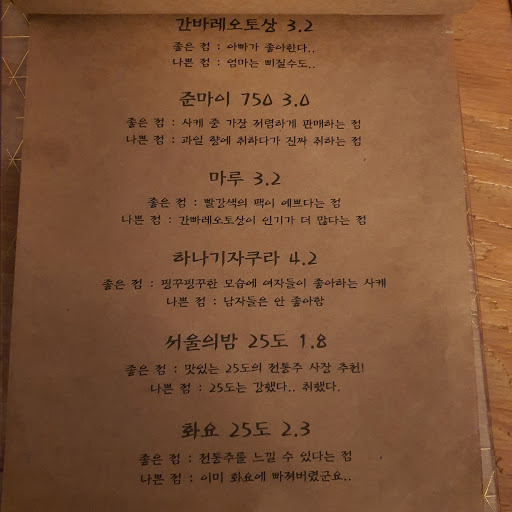 간바레오토상 3.2
좋은 점 : 아빠가 좋아한다..
나쁜 점 : 엄마는 삐질수도..
준마이 750 3.0
좋은 점 : 사케 중 가장 저렴하게 판매하는 점
나쁜 점 : 과일 향에 취하다가 진짜 취하는 점
마루 3.2
좋은 점 : 빨간색의 팩이 예쁘다는 점
나쁜 점 : 간빠레오토상이 인기가 더 많다는 점
하나기자쿠라 4.2
좋은 점 : 핑꾸핑꾸한 모습에 여자들이 좋아하는 사케
나쁜 점 : 남자들은 안 좋아함
서울의밤 25도 1.8
좋은 점 : 맛있는 25도의 전통주 사장 추천!
나쁜 점 : 25도는 강했다.. 취했다.
화요 25도 2.3
좋은 점 : 전통주를 느낄 수 있다는 점
나쁜 점 : 이미 화요에 빠져버렸군요..